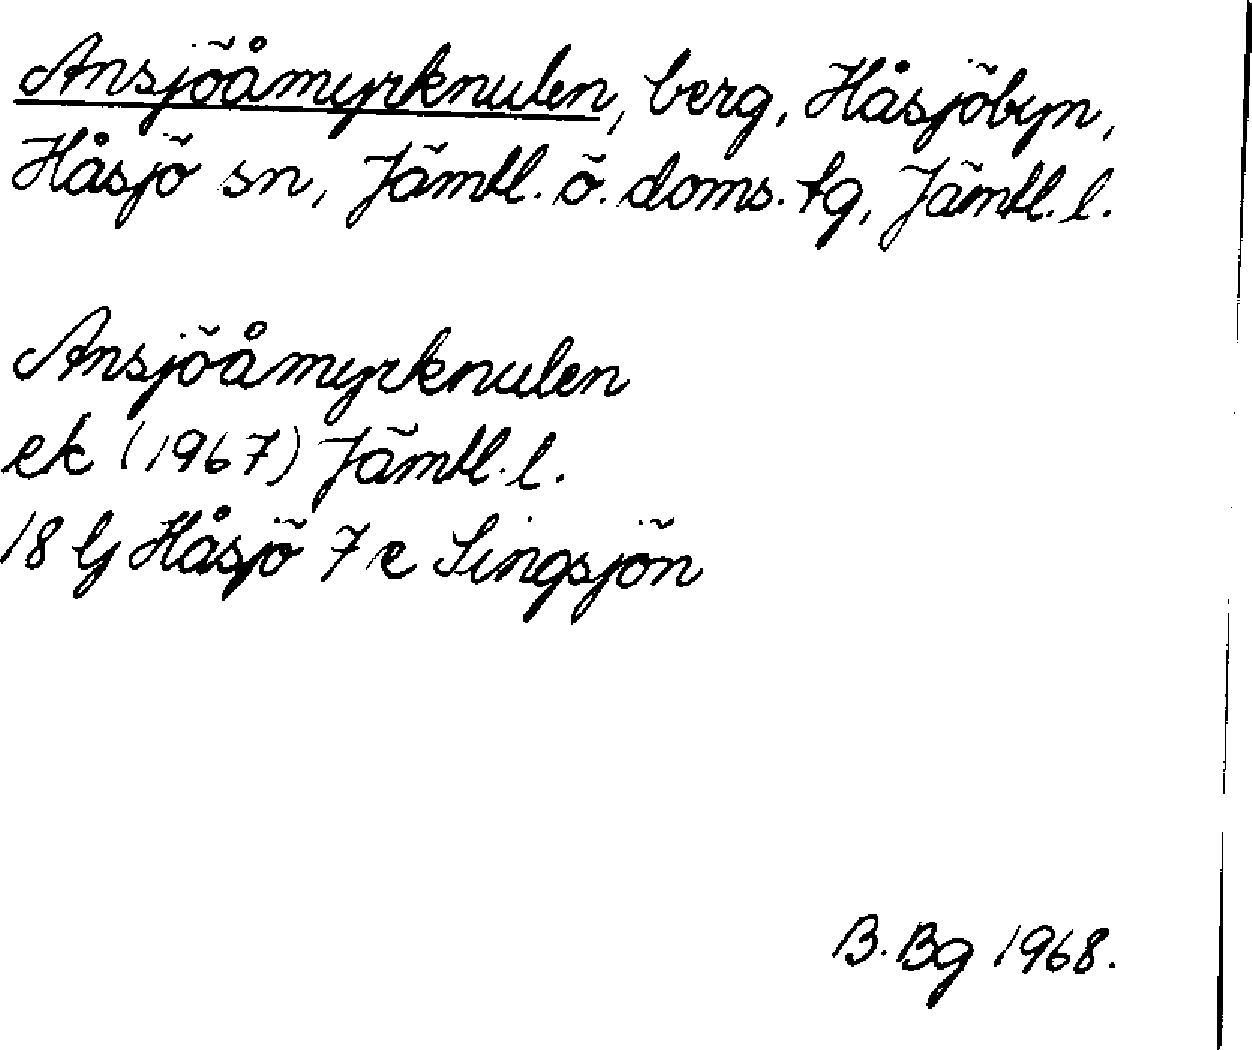 Ansjöåmyrknulen, berg, Håsjöbyn,
Håsjö sn, Jämtl. ö. doms. tg, Jämtl. l.
Ansjöåmyrknulen
ek (1967) Jämtl. l.
18 G Håsjö 7 e Singsjön
B. Bg 1968.